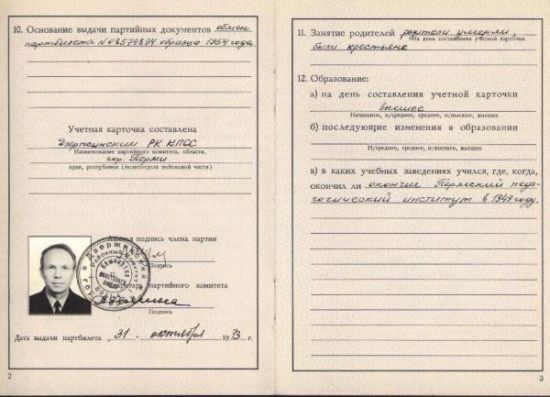 10. Основание выдачи партийных документов обмен
партбилета № 08574874 образца 1954 года.
Учетная карточка составлена
Дзержинским РК КПСС
Наименование партийного комитета, области,
гор. Перми
края, республики (политотдела войсковой части)
Личная подпись члена партии
Подпись
Секретарь партийного комитета
Подпись
Дата выдачи партбилета „31“ октября 1973 г.
2
11. Занятие родителей родители умерли,
На день составления учетной карточки
были крестьяне
12. Образование:
а) на день составления учетной карточки
высшее
Начальное, н/среднее, среднее, н/высшее, высшее
б) последующие изменения в образовании
Н/среднее, среднее, н/высшее, высшее
в) в каких учебных заведениях учился, где, когда,
окончил ли окончил Пермский педа-
гогический институт в 1949 году.
3